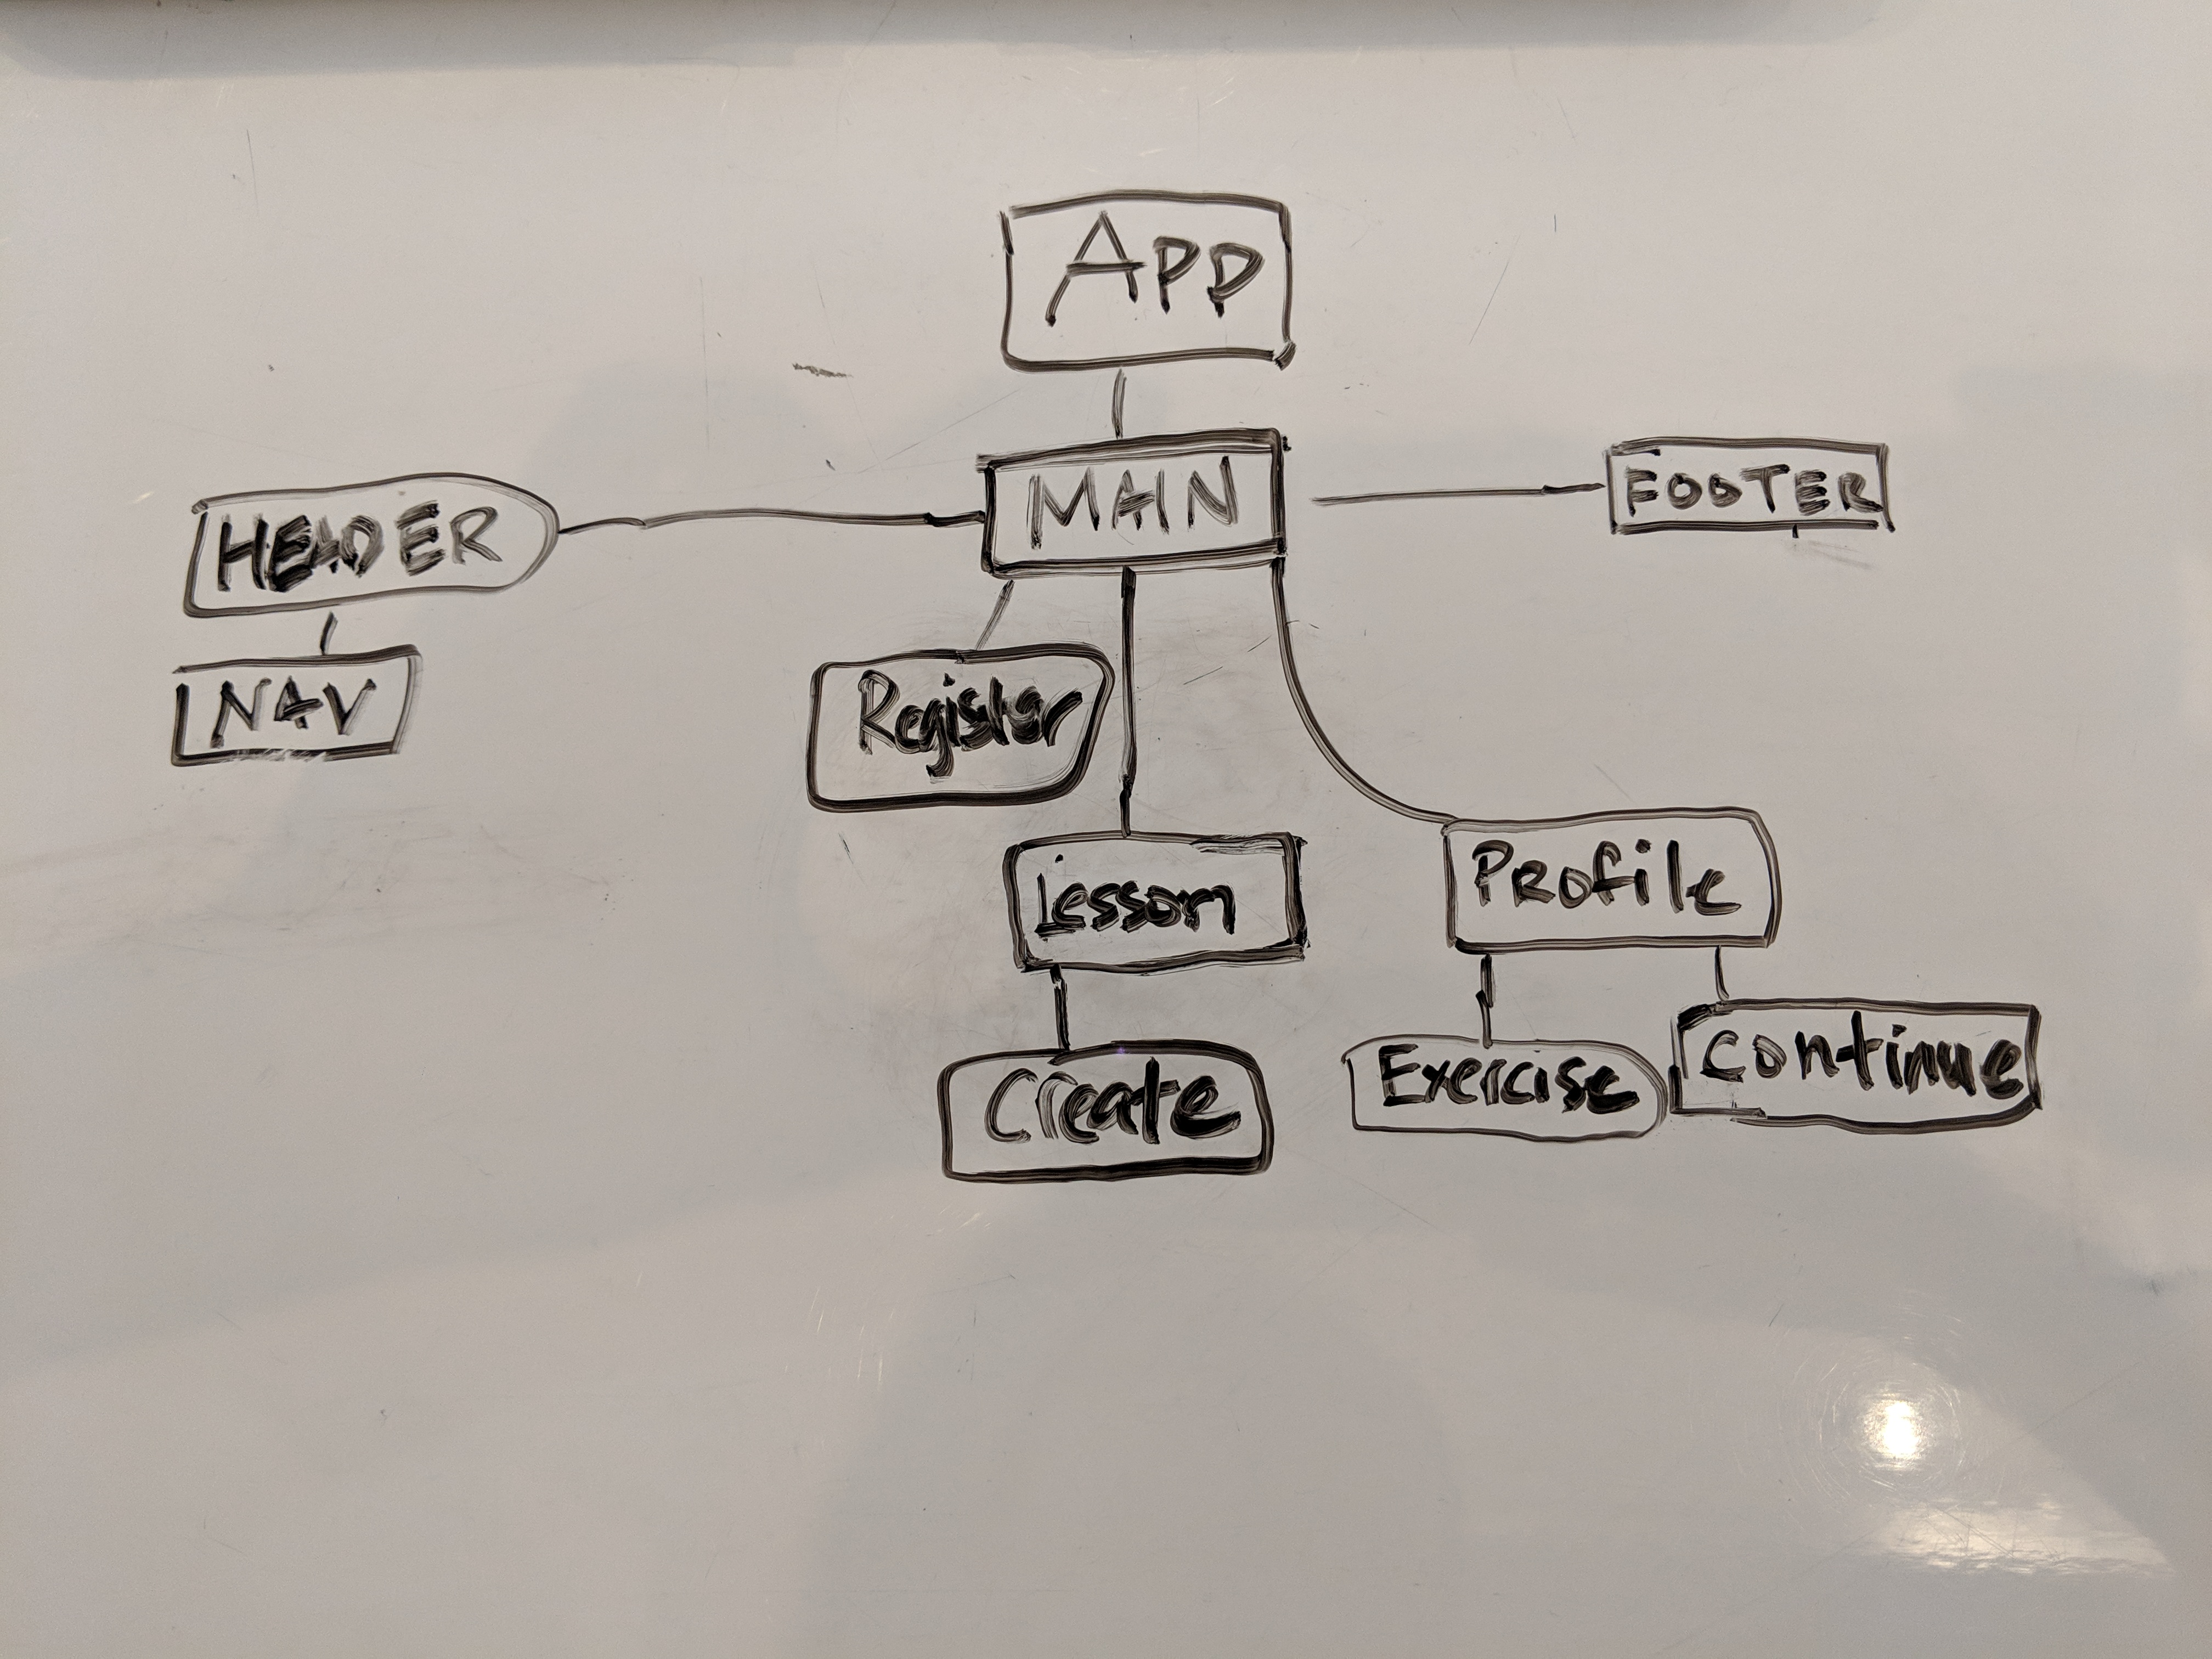 APP
MAIN
FOOTER
HEADER
NAV
Register
Lesson
Profile
Create
Exercise
Continue